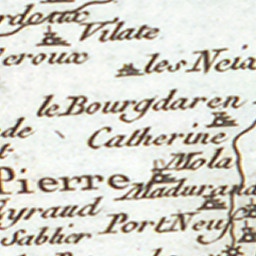 Vilate
les Neix
le Bourgdaren
de
Catherine
Mola
Pierre
Madurand
Eyraud
Port Neuf
Sablier